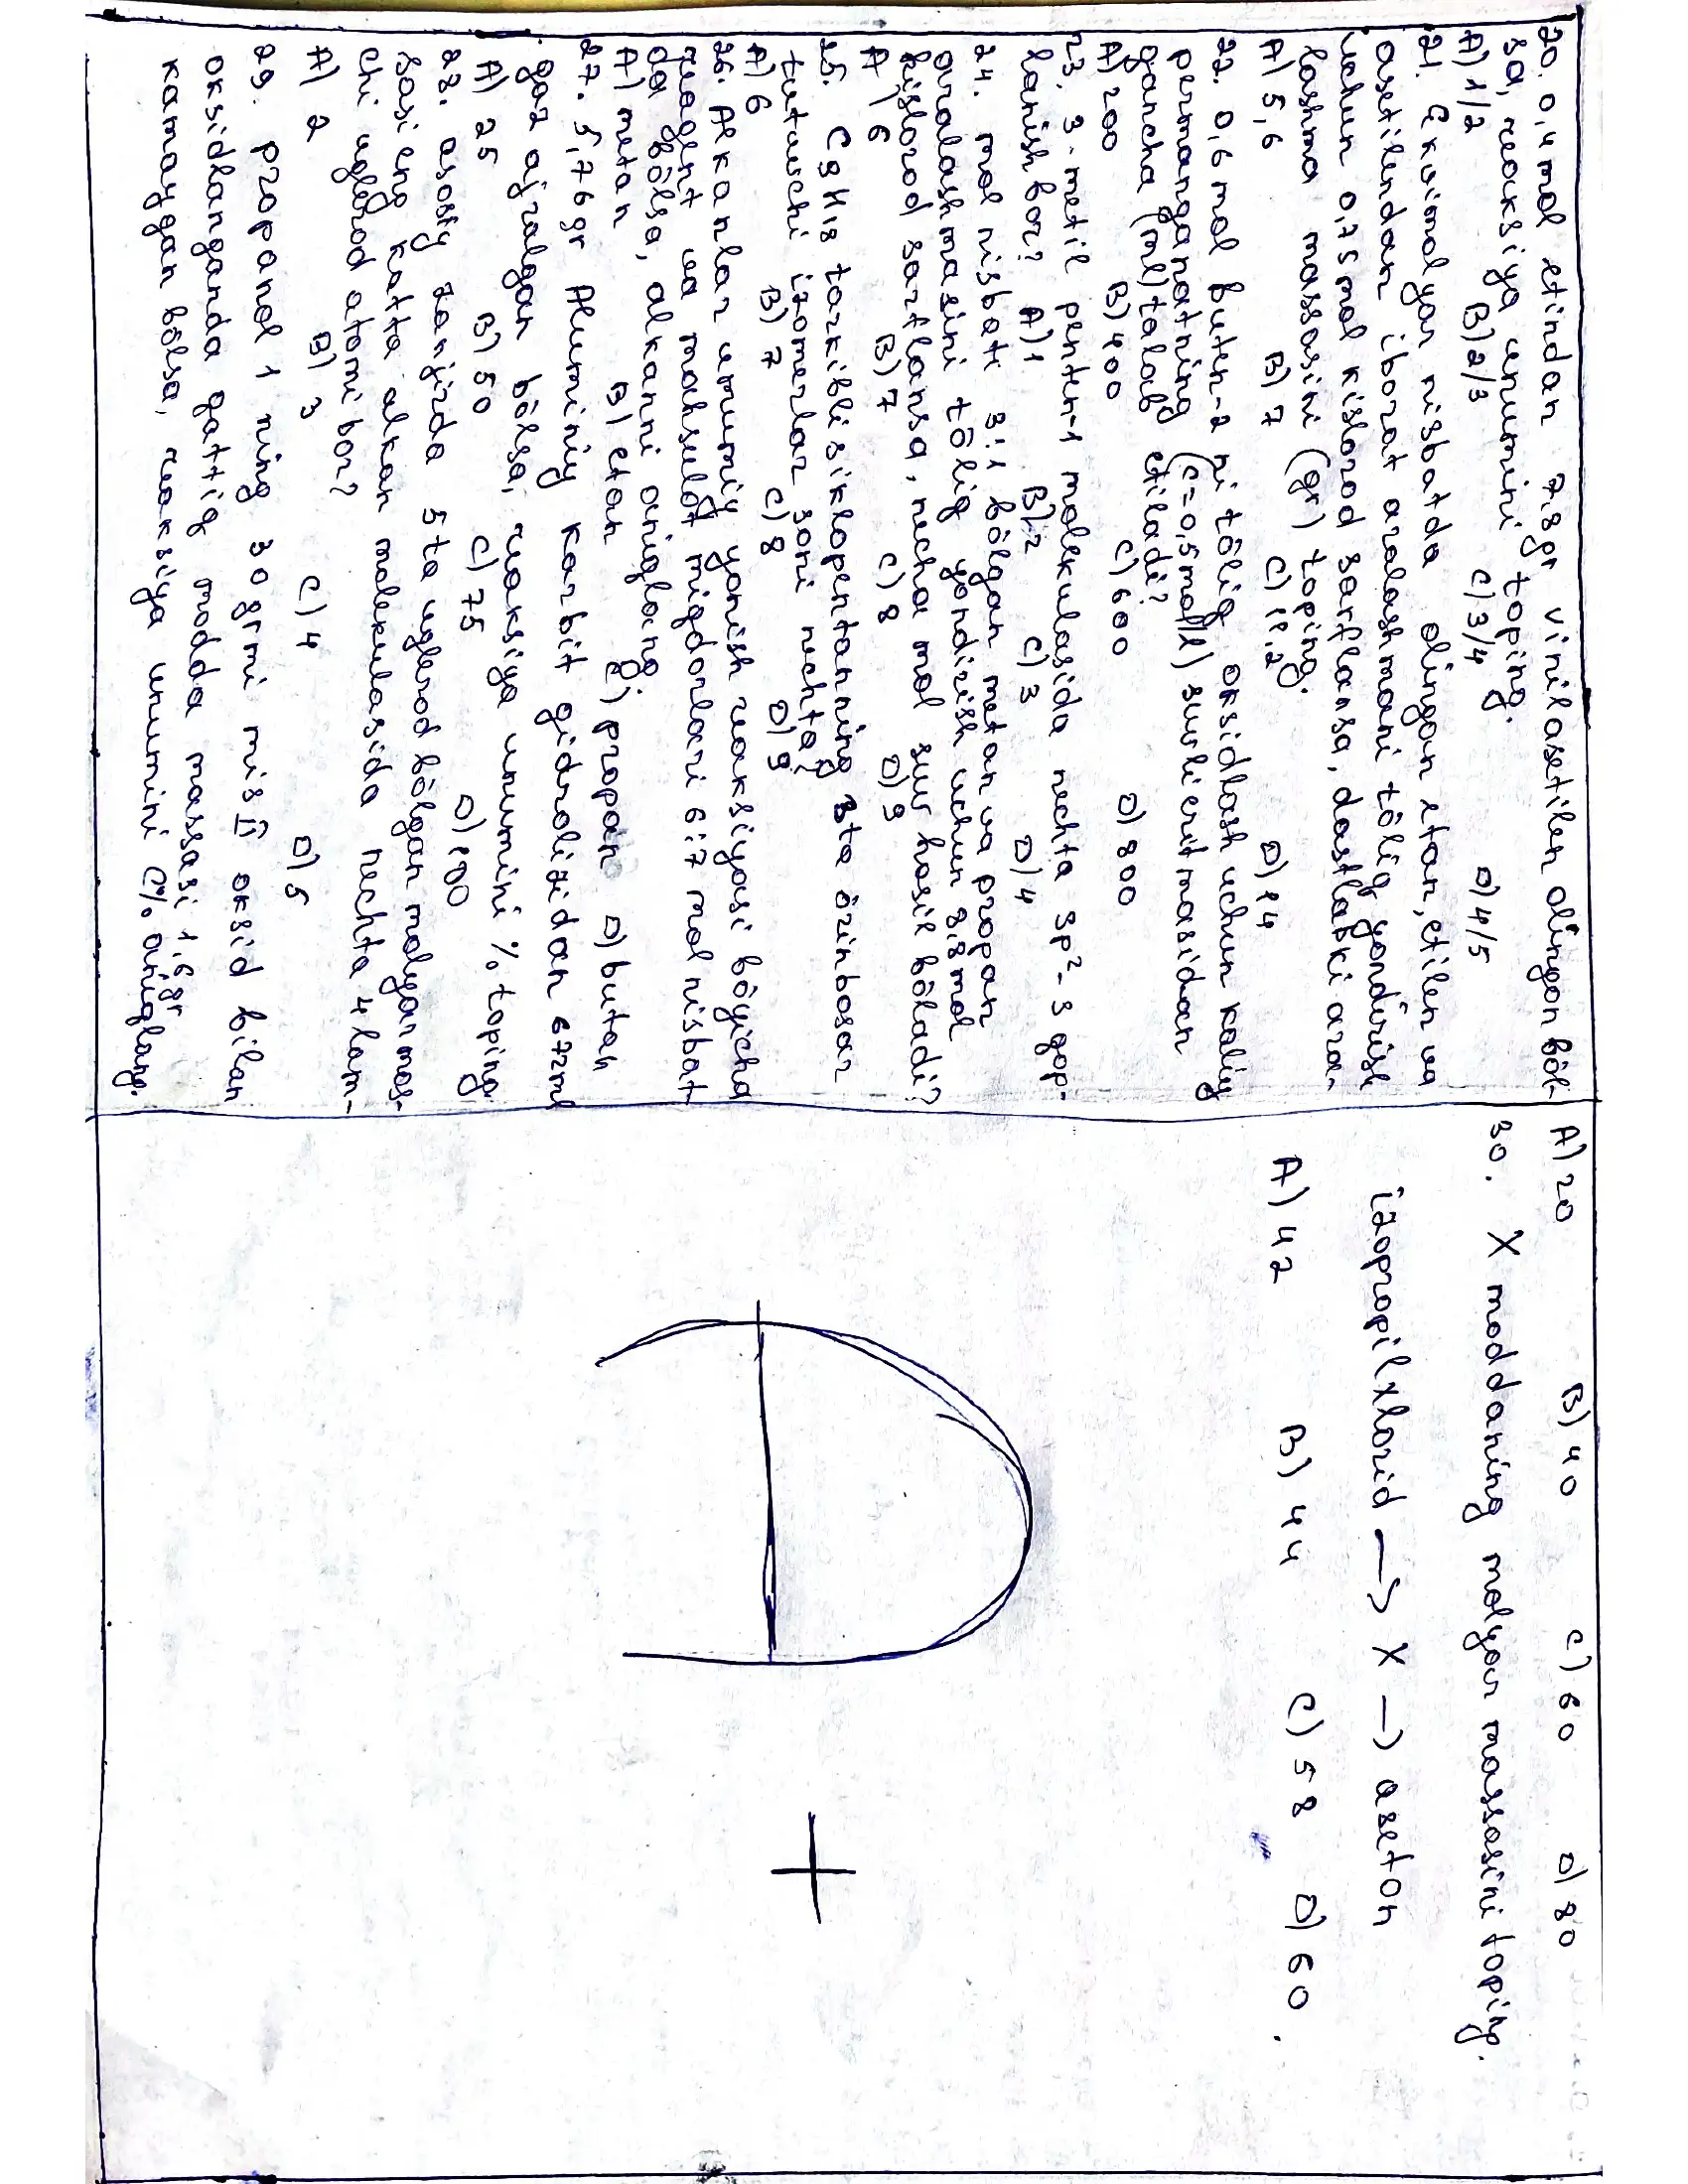 20. 0,4 mol etindan 7,8gr vinilasetilen olingan bõl-
sa, reaksiya unumini toping.
A) 1/2 B) 2/3 C) 3/4 D) 4/5
21. Ekvimolyar nisbatda olingan etan, etilen va
asetilendan iborat aralashmani tõliq yondirish
uchun 0,75mol kislorod sarflansa, dastlabki ara-
lashma massasini (gr) toping.
A) 5,6 B) 7 C) 11,2 D) 14
22. 0,6 mol buten-2 ni tõliq oksidlash uchun kaliy
permanganatning (c=0,5mol/l) suvli eritmasidan
qancha (ml) talab etiladi?
A) 200 B) 400 C) 600 D) 800
23. 3-metil penten-1 molekulasida nechta sp²-s qop-
lanish bor? A) 1 B) 2 C) 3 D) 4
24. mol nisbati 3:1 bõlgan metan va propan
aralashmasini tõliq yondirish uchun 8,8mol
kislorod sarflansa, necha mol suv hosil bõladi?
A) 6 B) 7 C) 8 D) 9
25. C9H18 tarkibli siklopentanning 3ta õrinbosar
tutuvchi izomerlar soni nechta?
A) 6 B) 7 C) 8 D) 9
26. Alkanlar umumiy yonish reaksiyasi bõyicha
reagent va mahsulot miqdorlari 6:7 mol nisbat
da bõlsa, alkanni aniqlang.
A) metan B) etan C) propan D) butan
27. 5,76gr Aluminiy karbit gidrolizidan 672ml
gaz ajralgan bõlsa, reaksiya unumini % toping
A) 25 B) 50 C) 75 D) 100
28. asosiy zanjirda 5ta uglerod bõlgan molyar mas-
sasi eng katta alkan molekulasida nechta 4 lam-
chi uglerod atomi bor?
A) 2 B) 3 C) 4 D) 5
29. propanol 1 ning 30grni mis II oksid bilan
oksidlanganda qattiq modda massasi 1,6gr
kamaygan bõlsa, reaksiya unumini (% aniqlang.
A) 20 B) 40 C) 60 D) 80
30. X moddaning molyar massasini toping.
izopropilxlorid → X → aseton
A) 42 B) 44 C) 58 D) 60.